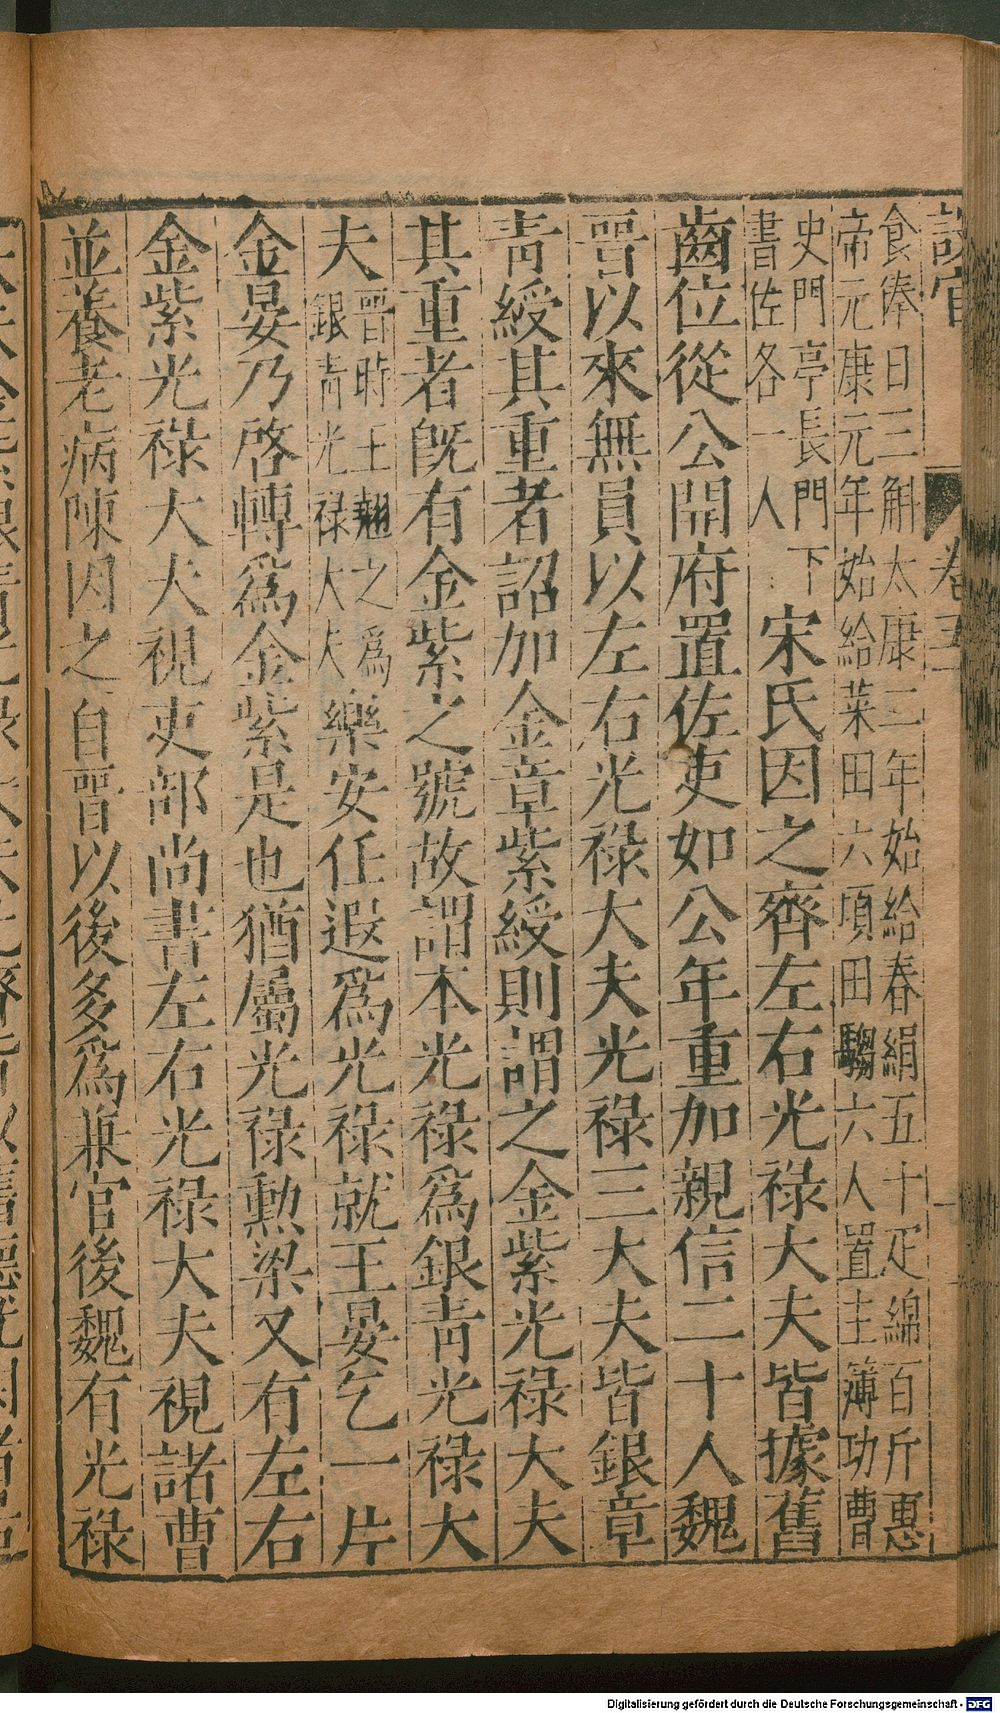 食俸日三斛太康二年始給春絹五十疋綿百斤惠
帝元康元年始給菜田六頃田騶六人置主簿功曹
史門亭長門下
書佐各一人
宋氏因之齊左右光祿大夫皆據舊
齒位從公開府置佐吏如公年重加親信二十人魏
晋以來無員以左右光祿大夫光祿三大夫皆銀章
青綬其重者詔加金章紫綬則謂之金紫光祿大夫
其重者旣有金紫之號故謂本光祿爲銀青光祿大
夫
晋時王翹之爲
銀青光祿大夫
樂安任遐爲光祿就王晏乞一片
金晏乃啓轉爲金紫是也猶屬光祿勲梁又有左右
金紫光祿大夫視吏部尚書左右光祿大夫視諸曹
並養老病陳因之自晋以後多爲兼官後魏有光祿
卷五
Digitalisierung gefördert durch die Deutsche Forschungsgemeinschaft - DFG